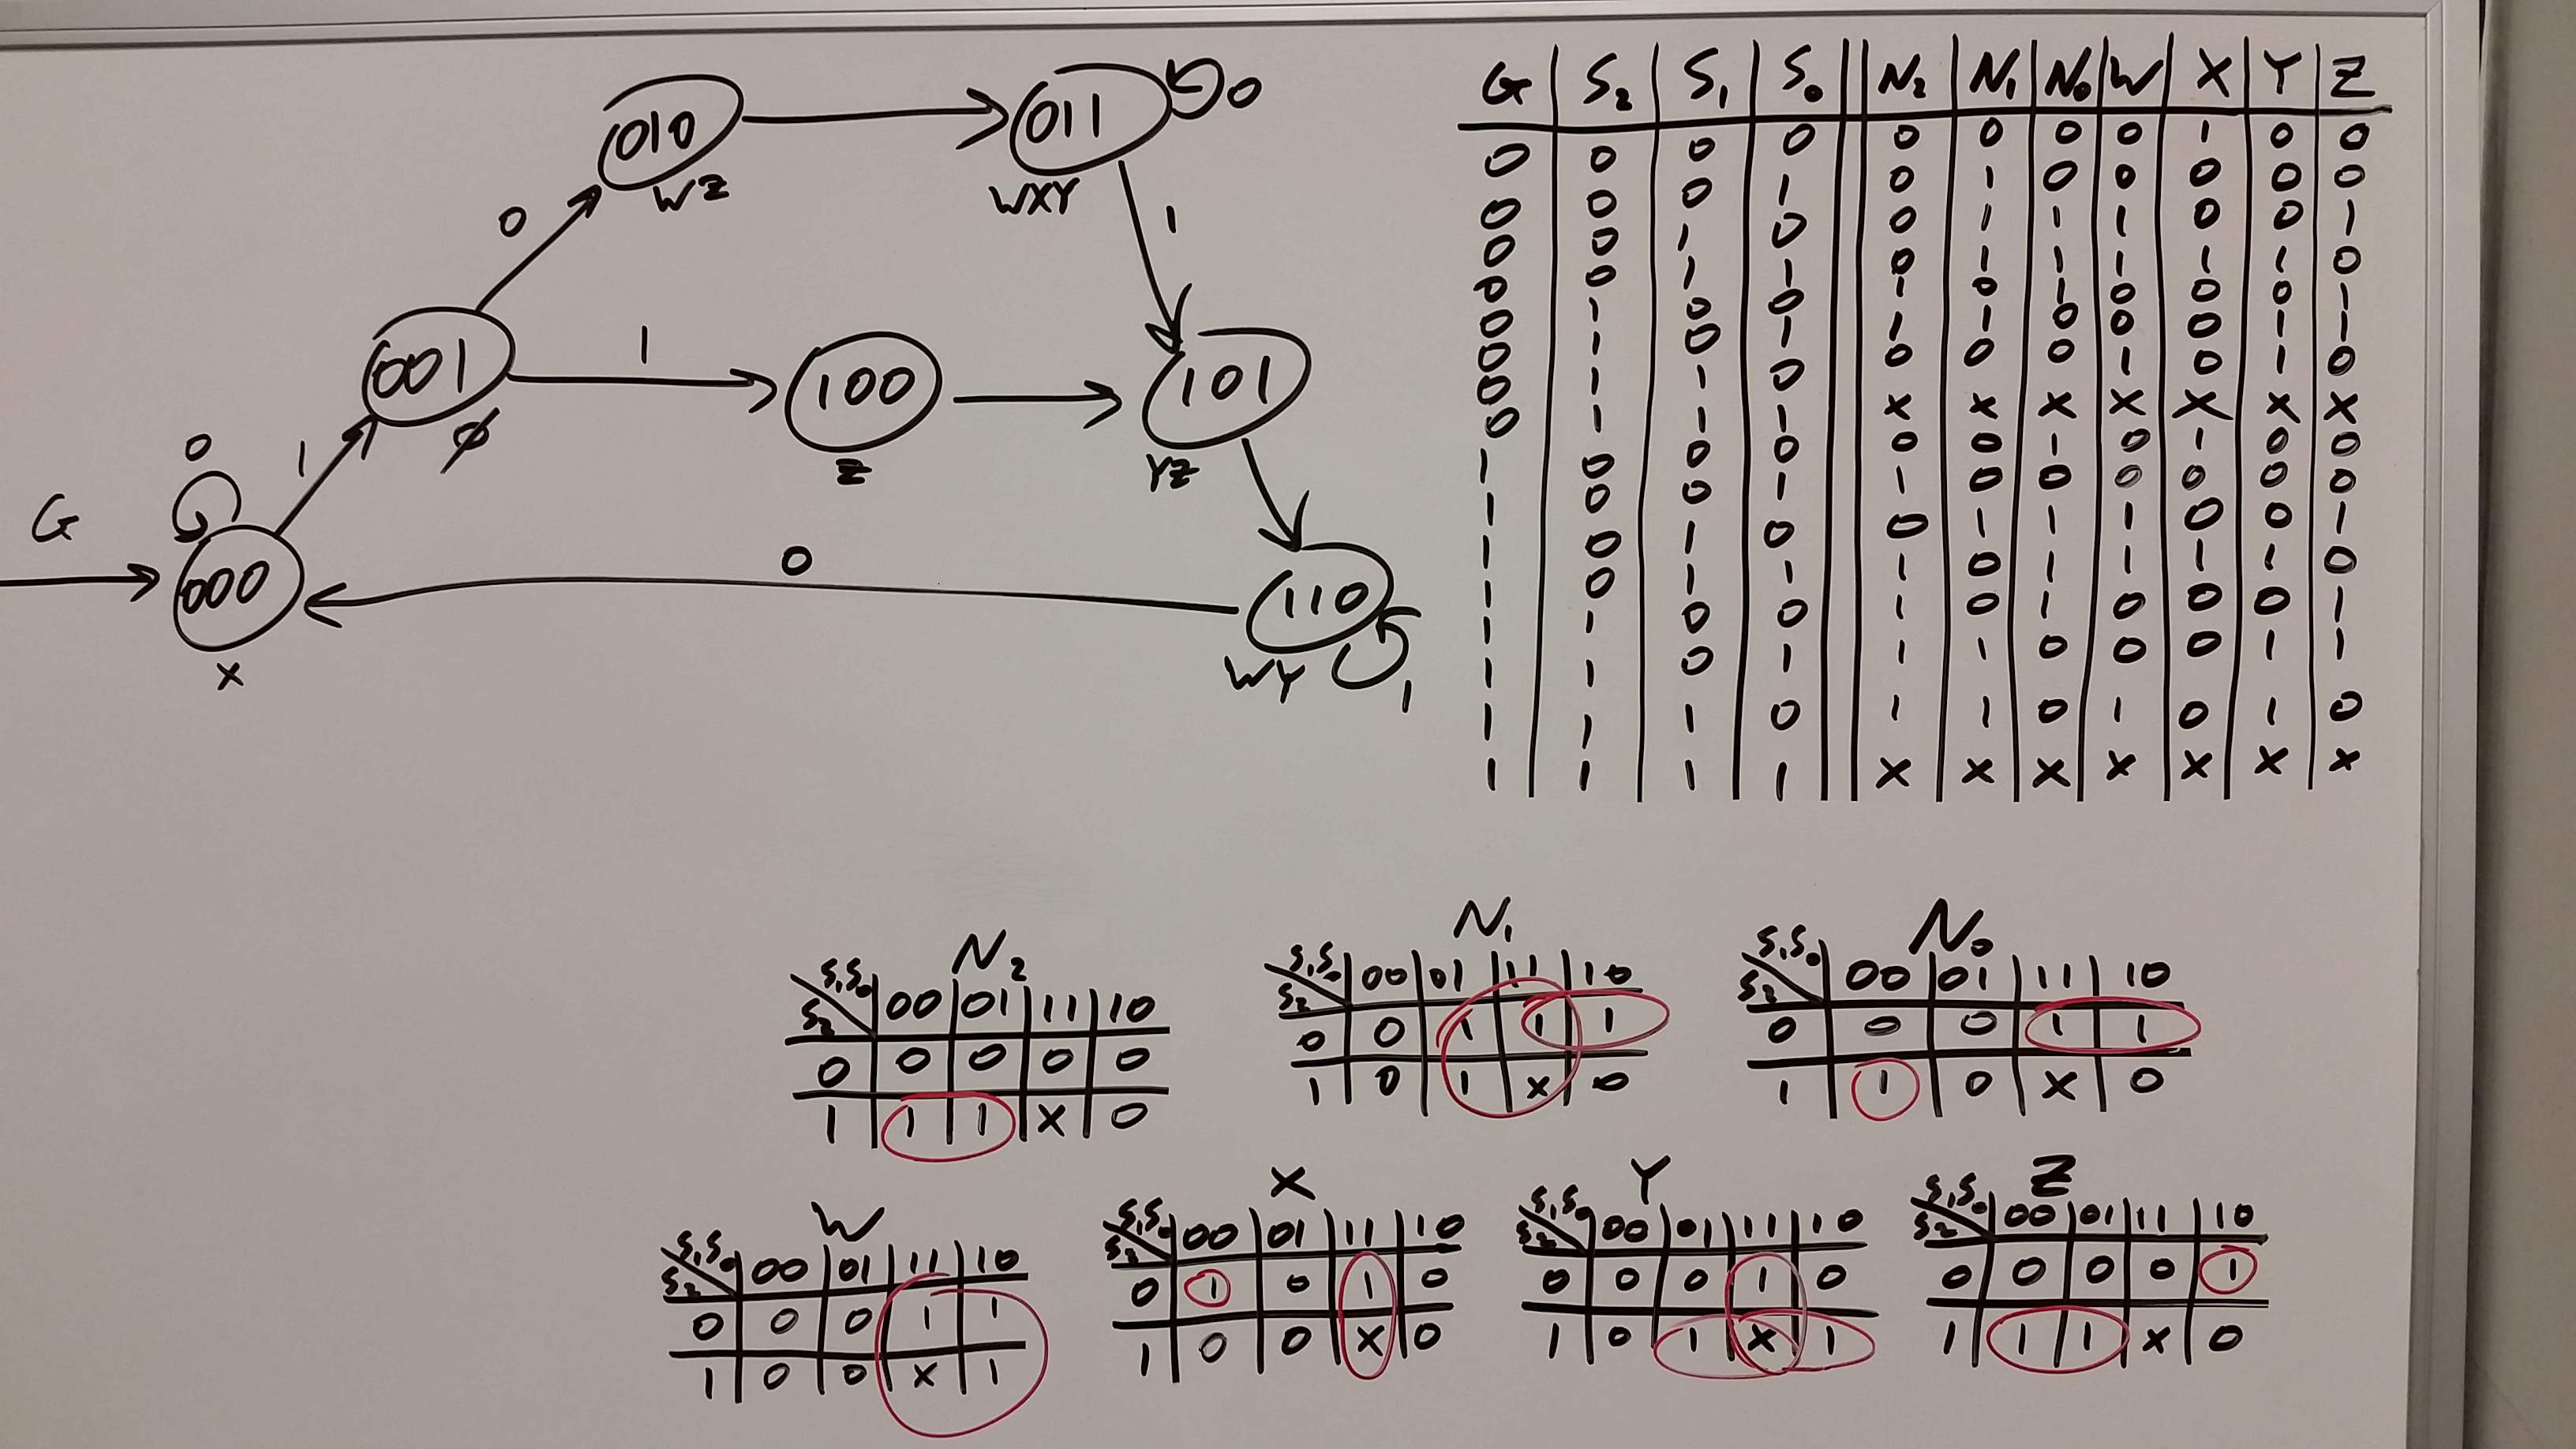 G
000
X
0
1
001
∅
0
1
010
WZ
011
WXY
0
1
100
Z
101
YZ
110
WY
1
0
G S₂ S₁ S₀ N₂ N₁ N₀ W X Y Z
0 0 0 0 0 0 0 0 1 0 0
0 0 0 1 0 1 0 0 0 0 0
0 0 1 0 0 1 1 1 0 0 1
0 0 1 1 0 1 1 1 1 1 0
0 1 0 0 1 0 1 0 0 0 1
0 1 0 1 1 1 0 0 0 1 1
0 1 1 0 0 0 0 1 0 1 0
0 1 1 1 X X X X X X X
1 0 0 0 0 0 1 0 1 0 0
1 0 0 1 1 0 0 0 0 0 0
1 0 1 0 0 1 1 1 0 0 1
1 0 1 1 1 0 1 1 1 1 0
1 1 0 0 1 0 1 0 0 0 1
1 1 0 1 1 1 0 0 0 1 1
1 1 1 0 1 1 0 1 0 1 0
1 1 1 1 X X X X X X X
N₂
S₁S₀ 00 01 11 10
S₂
0 0 0 0 0
1 1 1 X 0
N₁
S₁S₀ 00 01 11 10
S₂
0 0 1 1 1
1 0 1 X 0
N₀
S₁S₀ 00 01 11 10
S₂
0 0 0 1 1
1 1 0 X 0
W
S₁S₀ 00 01 11 10
S₂
0 0 0 1 1
1 0 0 X 1
X
S₁S₀ 00 01 11 10
S₂
0 1 0 1 0
1 0 0 X 0
Y
S₁S₀ 00 01 11 10
S₂
0 0 0 1 0
1 0 1 X 1
Z
S₁S₀ 00 01 11 10
S₂
0 0 0 0 1
1 1 1 X 0